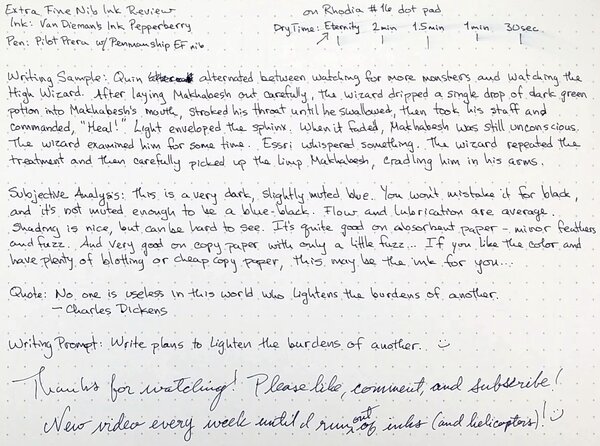 Extra Fine Nib Ink Review on Rhodia #16 dot pad
Ink: Van Dieman's Ink Pepperberry Dry Time: Eternity 2min 1.5min 1min 30sec
Pen: Pilot Prera w/Penmanship EF nib
Writing Sample: Quin alternated between watching for more monsters and watching the
High Wizard. After laying Makhabesh out carefully, the wizard dripped a single drop of dark green
potion into Makhabesh's mouth, stroked his throat until he swallowed, then took his staff and
commanded, "Heal!" Light enveloped the sphinx. When it faded, Makhabesh was still unconscious.
The wizard examined him for some time. Essri whispered something. The wizard repeated the
treatment and then carefully picked up the limp Makhabesh, cradling him in his arms.
Subjective Analysis: This is a very dark, slightly muted blue. You won't mistake it for black,
and it's not muted enough to be a blue-black. Flow and lubrication are average.
Shading is nice, but can be hard to see. It's quite good on absorbent paper - minor feathers
and fuzz. And very good on copy paper with only a little fuzz... If you like the color and
have plenty of blotting or cheap copy paper, this may be the ink for you...
Quote: No one is useless in this world who lightens the burdens of another.
- Charles Dickens
Writing Prompt: Write plans to lighten the burdens of another.
Thanks for watching! Please like, comment, and subscribe!
New video every week until I run out of inks (and helicopters)!